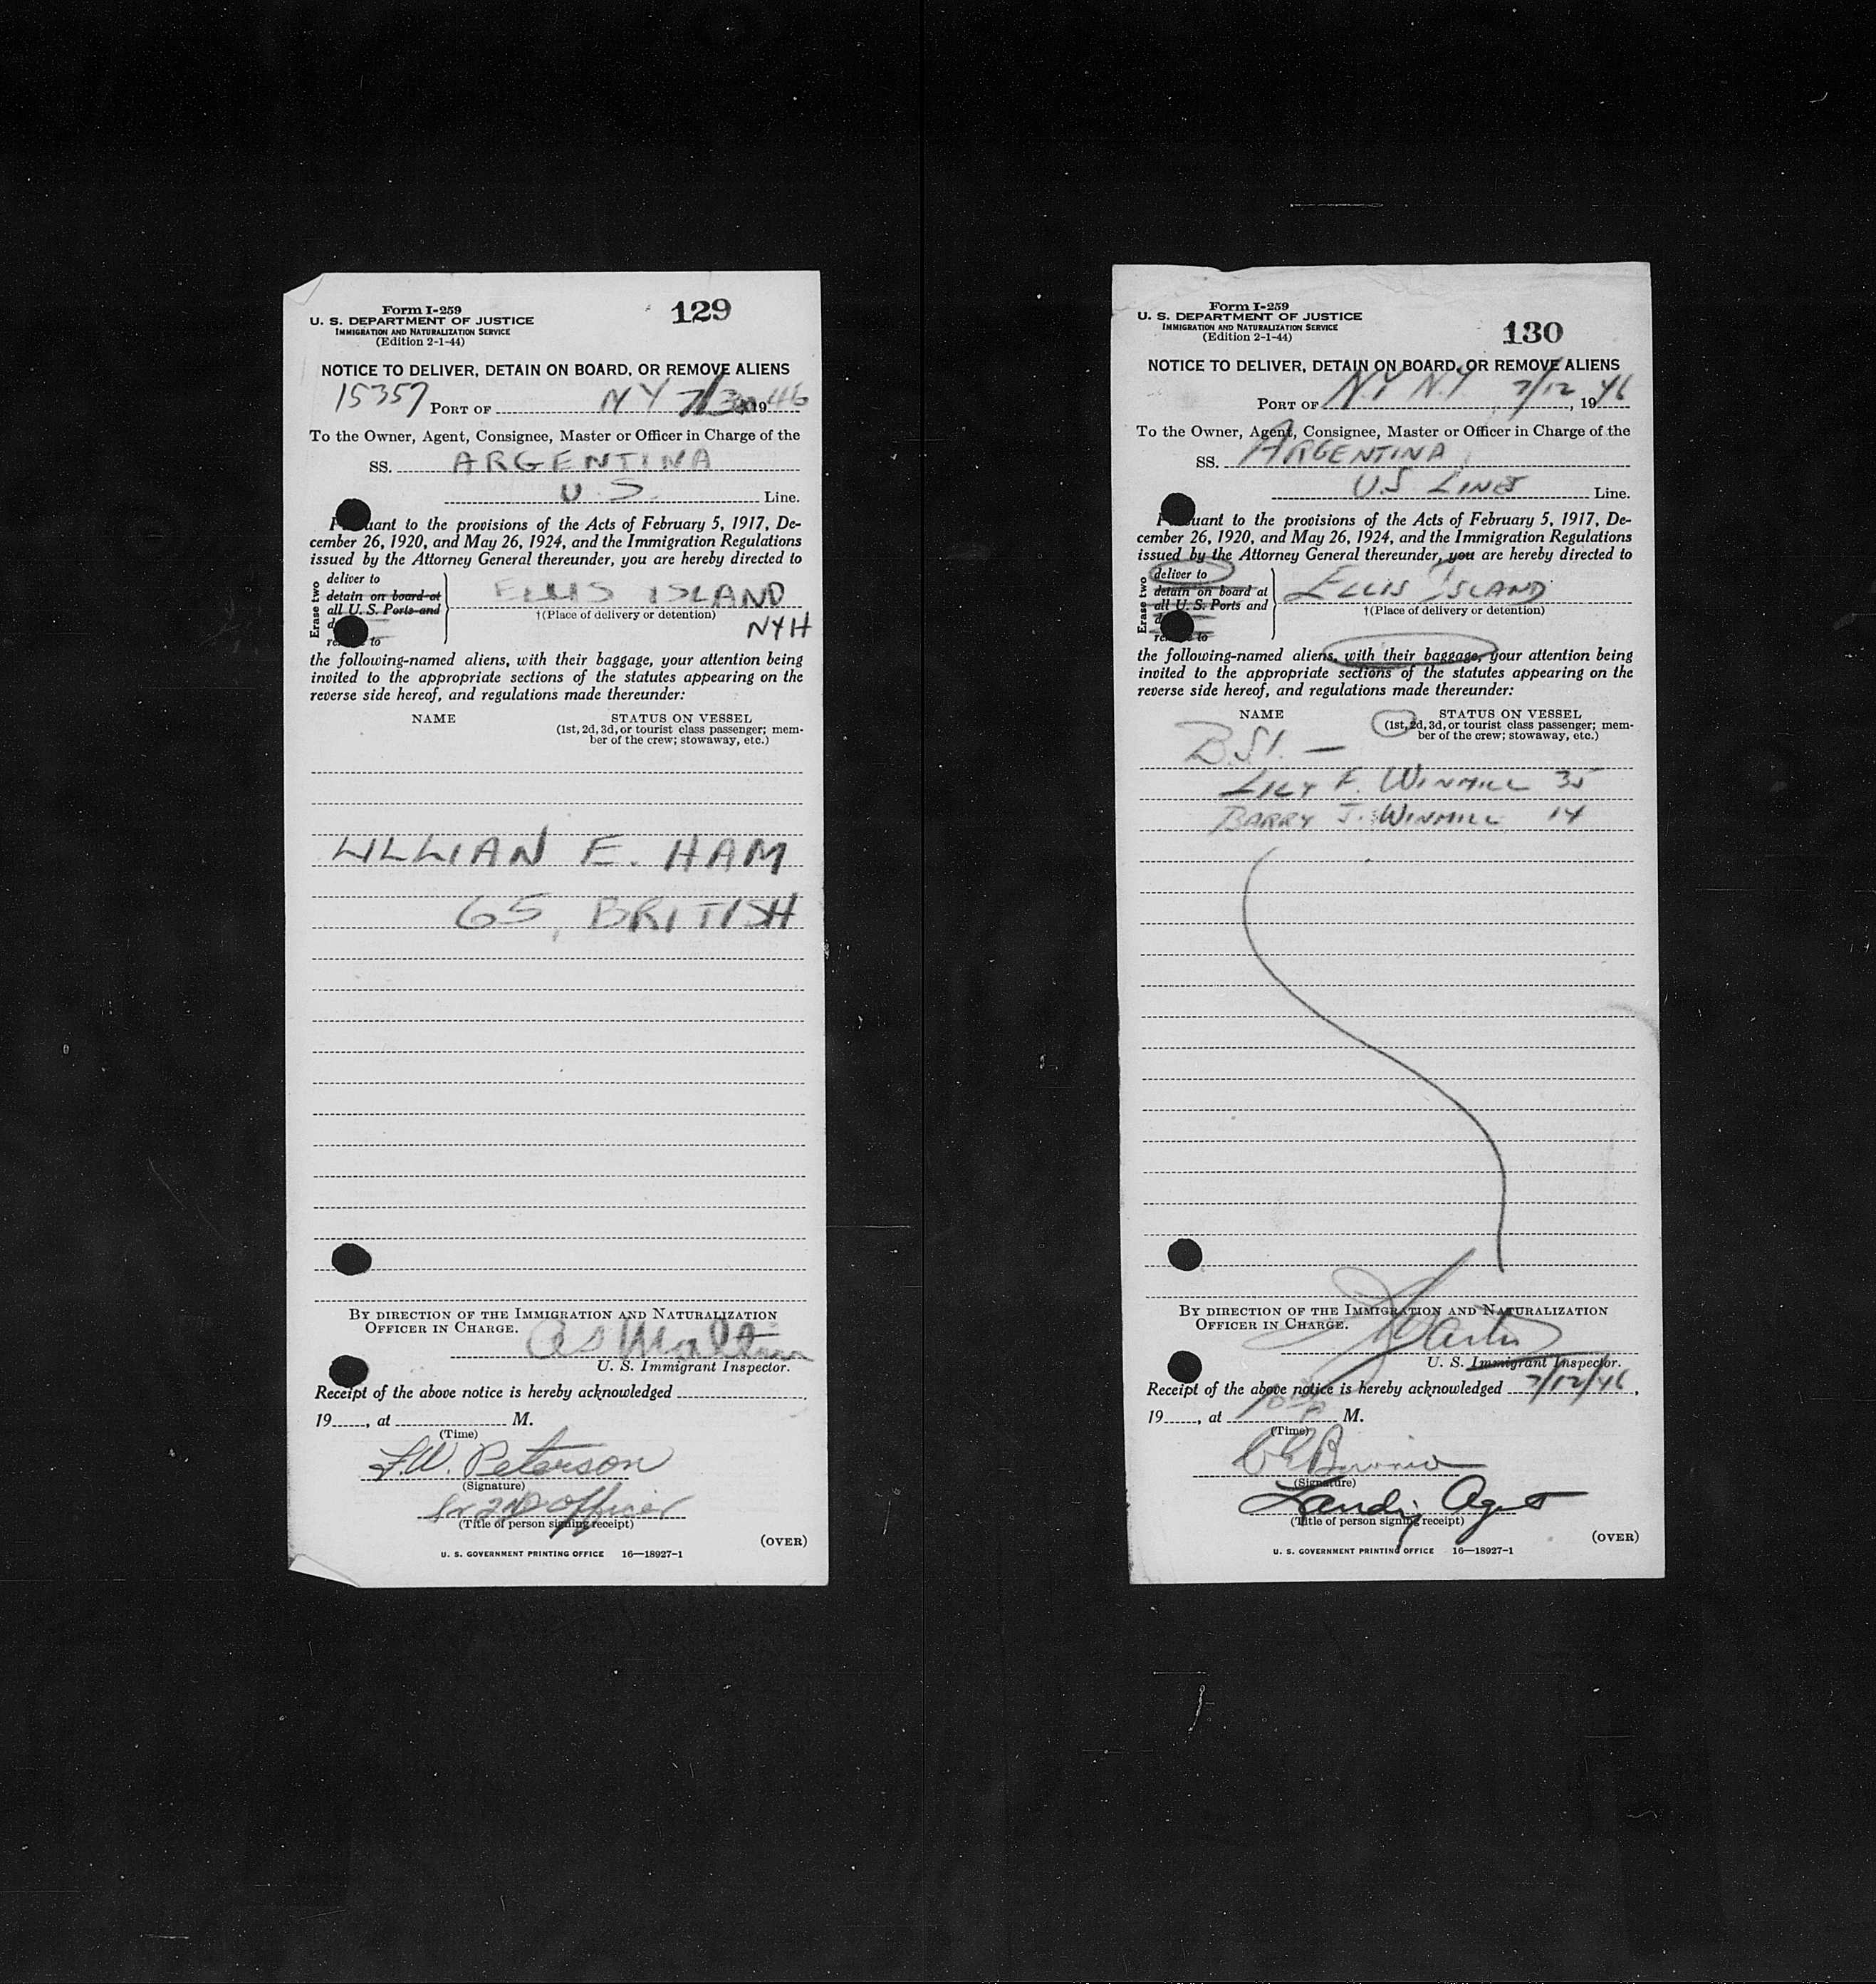 Form I-259
U. S. DEPARTMENT OF JUSTICE
IMMIGRATION AND NATURALIZATION SERVICE
(Edition 2-1-44)
129
NOTICE TO DELIVER, DETAIN ON BOARD, OR REMOVE ALIENS
15357 PORT OF NY 19 46
To the Owner, Agent, Consignee, Master or Officer in Charge of the
SS. ARGENTINA
U.S. Line.
uant to the provisions of the Acts of February 5, 1917, De-
cember 26, 1920, and May 26, 1924, and the Immigration Regulations
issued by the Attorney General thereunder, you are hereby directed to
Erase two
deliver to
detain on board at
all U. S. Ports and
to
ELLIS ISLAND
†(Place of delivery or detention)
NYH
the following-named aliens, with their baggage, your attention being
invited to the appropriate sections of the statutes appearing on the
reverse side hereof, and regulations made thereunder:
NAME STATUS ON VESSEL
(1st, 2d, 3d, or tourist class passenger; mem-
ber of the crew; stowaway, etc.)
LILLIAN E. HAM
65, BRITISH
BY DIRECTION OF THE IMMIGRATION AND NATURALIZATION
OFFICER IN CHARGE.
U. S. Immigrant Inspector.
Receipt of the above notice is hereby acknowledged
19 , at M.
(Time)
F.W. Peterson
(Signature)
2nd officer
(Title of person signing receipt)
(OVER)
U. S. GOVERNMENT PRINTING OFFICE 16—18927-1
Form I-259
U. S. DEPARTMENT OF JUSTICE
IMMIGRATION AND NATURALIZATION SERVICE
(Edition 2-1-44)
130
NOTICE TO DELIVER, DETAIN ON BOARD, OR REMOVE ALIENS
PORT OF N.Y N.Y 7/12, 19 46
To the Owner, Agent, Consignee, Master or Officer in Charge of the
SS. ARGENTINA
US LINES Line.
uant to the provisions of the Acts of February 5, 1917, De-
cember 26, 1920, and May 26, 1924, and the Immigration Regulations
issued by the Attorney General thereunder, you are hereby directed to
Erase two
deliver to
detain on board at
all U. S. Ports and
to
ELLIS ISLAND
†(Place of delivery or detention)
the following-named aliens, with their baggage, your attention being
invited to the appropriate sections of the statutes appearing on the
reverse side hereof, and regulations made thereunder:
NAME STATUS ON VESSEL
(1st, 2d, 3d, or tourist class passenger; mem-
ber of the crew; stowaway, etc.)
B.S.I. —
LILY F. WINMILL 35
BARRY J. WINMILL 14
BY DIRECTION OF THE IMMIGRATION AND NATURALIZATION
OFFICER IN CHARGE.
U. S. Immigrant Inspector.
Receipt of the above notice is hereby acknowledged 7/12/46,
19 , at M.
(Time)
(Signature)
Agent
(Title of person signing receipt)
(OVER)
U. S. GOVERNMENT PRINTING OFFICE 16—18927-1